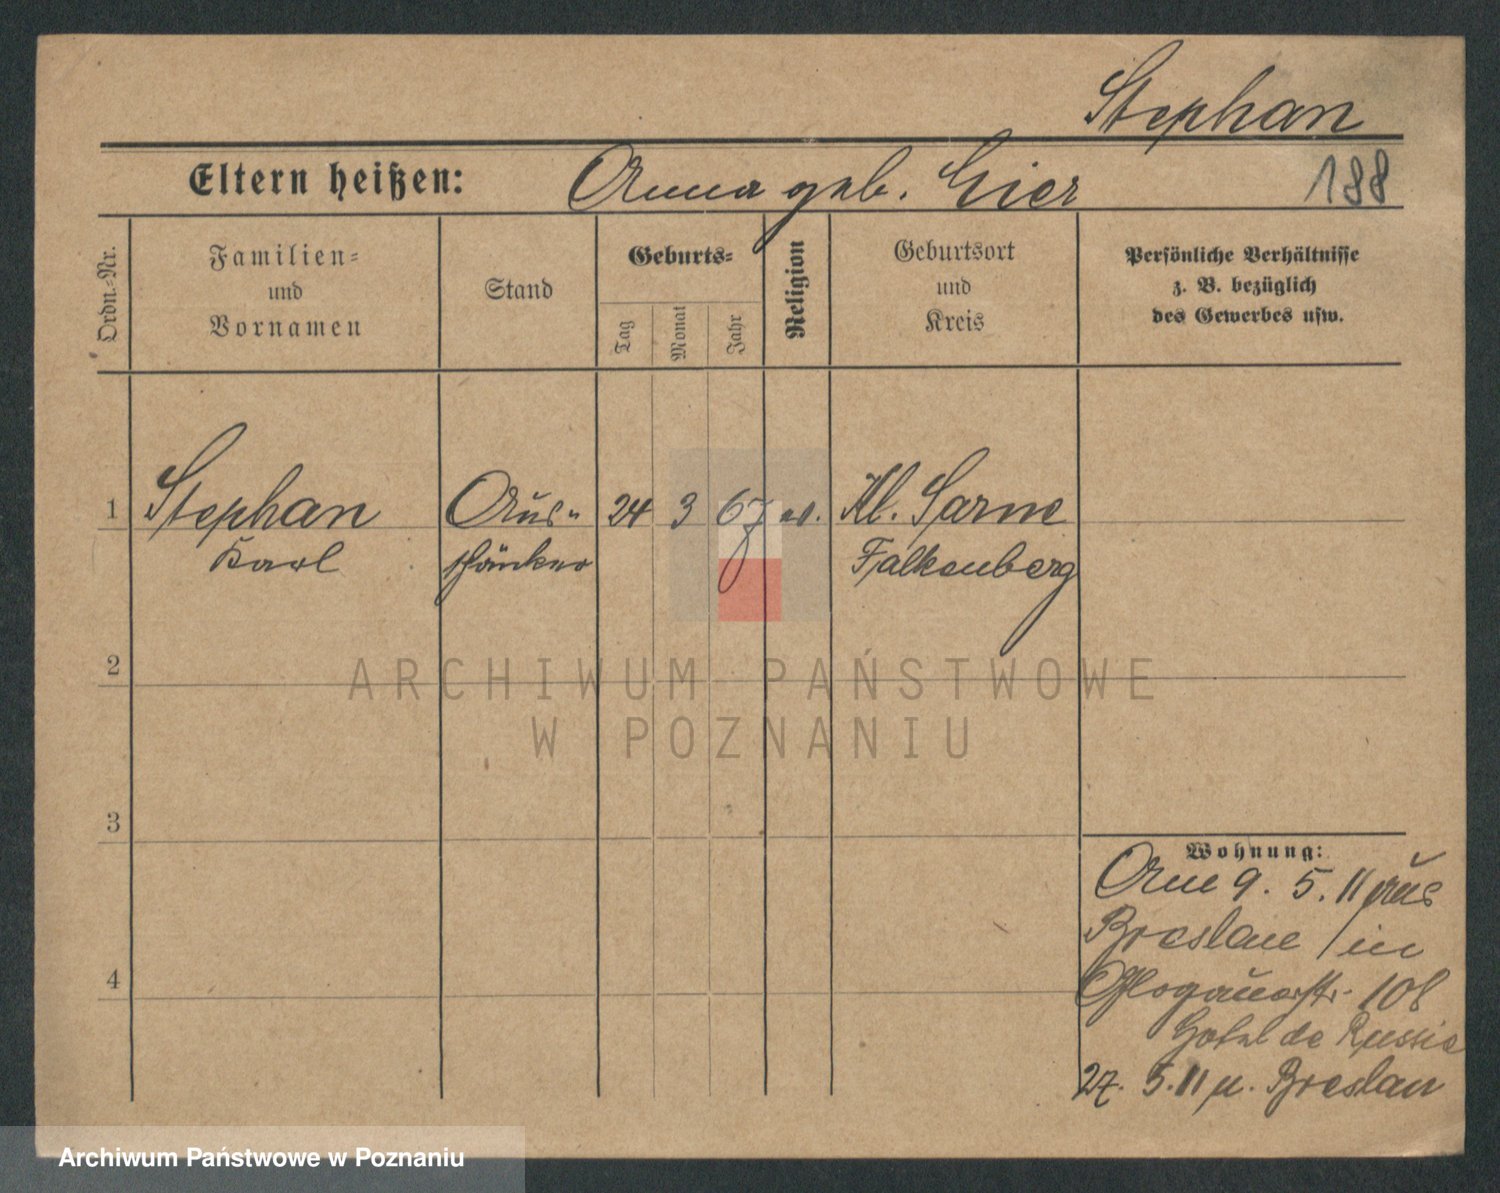 Stephan
Eltern heißen: Anna geb. Gier
188
Ordn.-Nr.
Familien-
und
Vornamen
Stand
Geburts-
Tag
Monat
Jahr
Religion
Geburtsort
und
Kreis
Persönliche Verhältnisse
z. B. bezüglich
des Gewerbes usw.
1 Stephan Aus- 24 3 67 ev. Kl. Sarne
Karl schänker Falkenberg
2
3
4
Wohnung:
Am 9. 5. 11 aus
Breslau / in
Glogauerstr. 108
Hotel de Russie
27. 5. 11 n. Breslau
ARCHIWUM PAŃSTWOWE
W POZNANIU
Archiwum Państwowe w Poznaniu